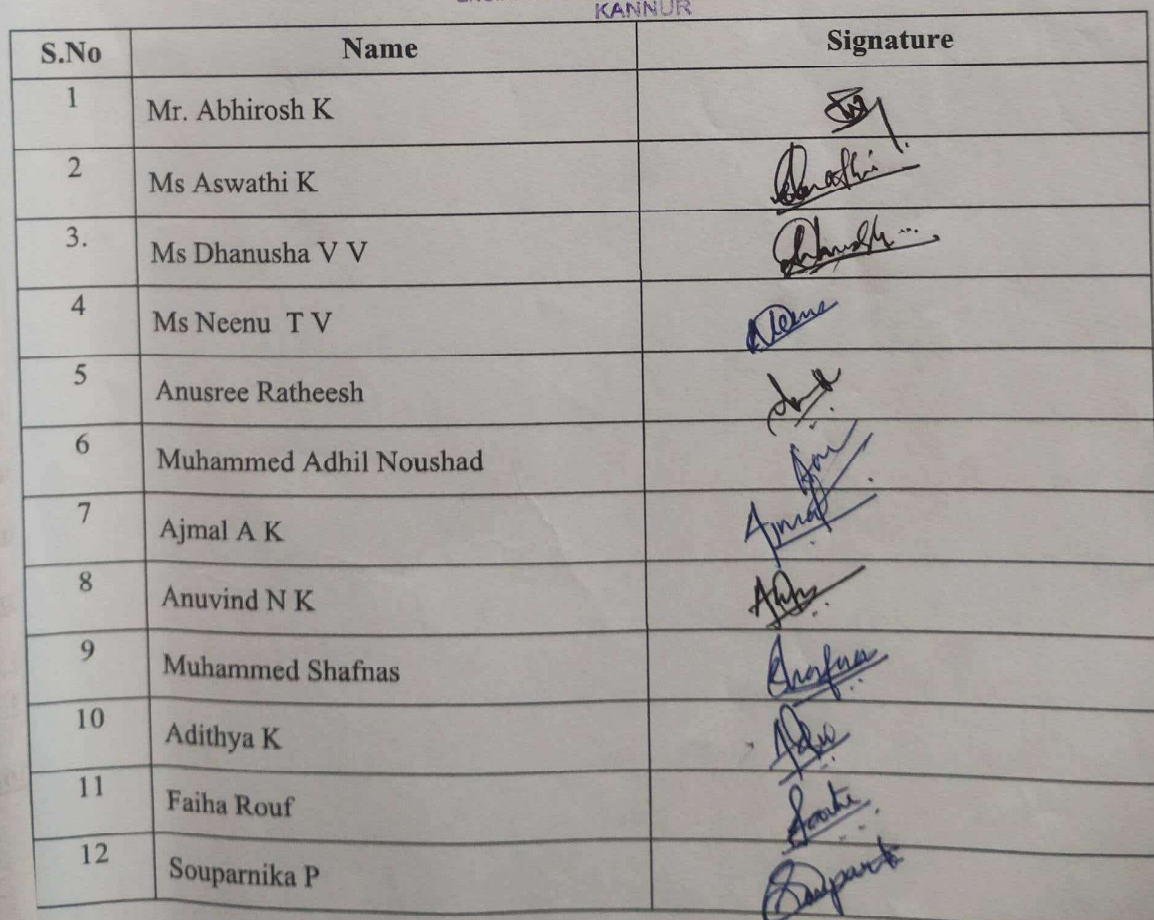 KANNUR
S.No Name Signature
1 Mr. Abhirosh K
2 Ms Aswathi K Aswathi
3. Ms Dhanusha V V
4 Ms Neenu T V Neenu
5 Anusree Ratheesh
6 Muhammed Adhil Noushad
7 Ajmal A K Ajmal
8 Anuvind N K
9 Muhammed Shafnas
10 Adithya K
11 Faiha Rouf
12 Souparnika P